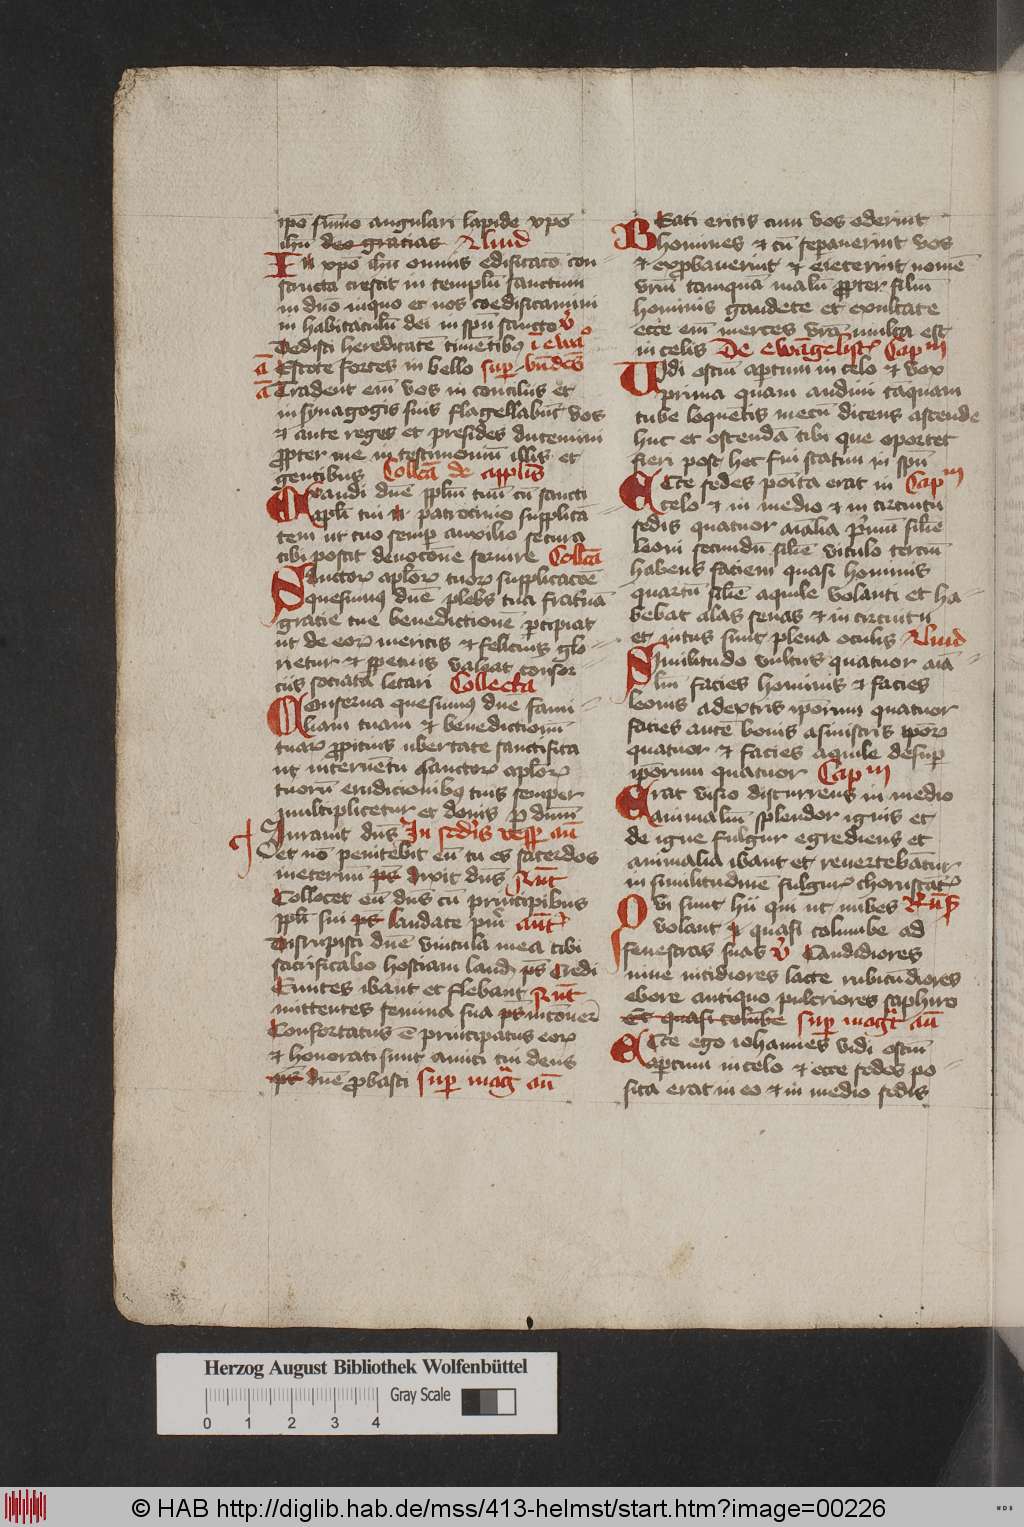 ipo sūmo angulari lapide xpo
ihu deo gracias Aliud
In xpo ihu omnis edificaco con-
structa crescit in templū sanctum
in dno in quo et nos coedificamini
in habitaculū dei in spū sancto v̄
Dedisti hereditatē timētibꝰ ī ewāº
ā Estote fortes in bello sup bn̄dcūs
ā Tradent em̄ vos in conciliis et
in synagogis suis flagellabūt vos
et ante reges et presides ducemini
ꝓpter me in testimoniū illis et
gentibus Collcā de applis
Exaudi dn̄e pplm tuū cū sancti
appli tui patrocinio supplicā-
tem ut tuo semp auxilio secura
tibi possit deuocone seruire Collcā
Sanctoꝝ aploꝝ tuoꝝ supplicacoē
quesumꝰ dn̄e plebs tua
gracie tue benedictione percipiat
ut de eoꝝ meritis et felicius glo-
rietur et ppetuis valeat consor-
ciis sociata letari Collecta
Conserua quesumꝰ dn̄e fami-
liam tuam et benedictionū
tuaꝝ ꝓpitius ubertate sanctifica
ut interuētu sanctoꝝ aploꝝ
tuorū erudicionibꝰ tuis semper
multiplicetur et donis p dnm̄
Iurauit dns In scd̄is vesp̄ an̄
et nō penitebit eū tu es sacerdos
meterim ps dixit dns Ant
Collocet eū dns cū principibus
ppli sui ps laudate puī ant
Disrupisti dn̄e vincula mea tibi
sacrificabo hostiam laud ps Credi
Euntes ibant et flebant Ant
mittentes semina sua ps in cōuer
Confortatus ē principatus eoꝝ
et honorati sunt amici tui deus
ps dn̄e ꝓbasti sup mag an̄
Beati eritis cum vos oderint
homines et cū sepauerint vos
et expbrauerint et eiecerint nomē
vrm̄ tamquā malū ꝓpter filiū
hominis gaudete et exultate
ecce em̄ merces vrā multa est
in celis De ewāgelist Capm
Vidi ostiū aptum in celo et vox
prima quam audiui tāquam
tube loquētis mecū dicens ascende
huc et ostendā tibi que oportet
fieri post hec fui statim in spū
Ecce sedes poita erat in Capm
celo et in medio et in circuitu
sedis quatuor aīalia pmū simile
leoni secundū simile vitulo terciū
habens faciem quasi hominis
quartū simile aquile volanti et ha-
bebat alas senas et in circuitu
et intus sunt plena oculis Aliud
Similitudo vultus quatuor aīa-
liū facies hominis et facies
leonis adextris iporum quatuor
facies autē bouis a sinistris ipoꝝ
quatuor et facies aquile desup
iporum quatuor Capm
Erat visio discurrens in medio
animaliū splendor ignis et
de igne fulgur egrediens et
animalia ibant et reuertebātur
in similitudinē fulguꝝ choruscātꝝ
Qui sunt hii qui ut nubes
volant et quasi columbe ad
fenestras suas v̄ Candidiores
niue nitidiores lacte rubicūdiores
ebore antiquo pulcriores saphiro
et quasi colūbe sup magt an̄
Ecce ego iohannes vidi ostiū
aptum in celo et ecce sedes po-
sita erat in eo et in medio sedis
Herzog August Bibliothek Wolfenbüttel
Gray Scale
0 1 2 3 4
© HAB http://diglib.hab.de/mss/413-helmst/start.htm?image=00226